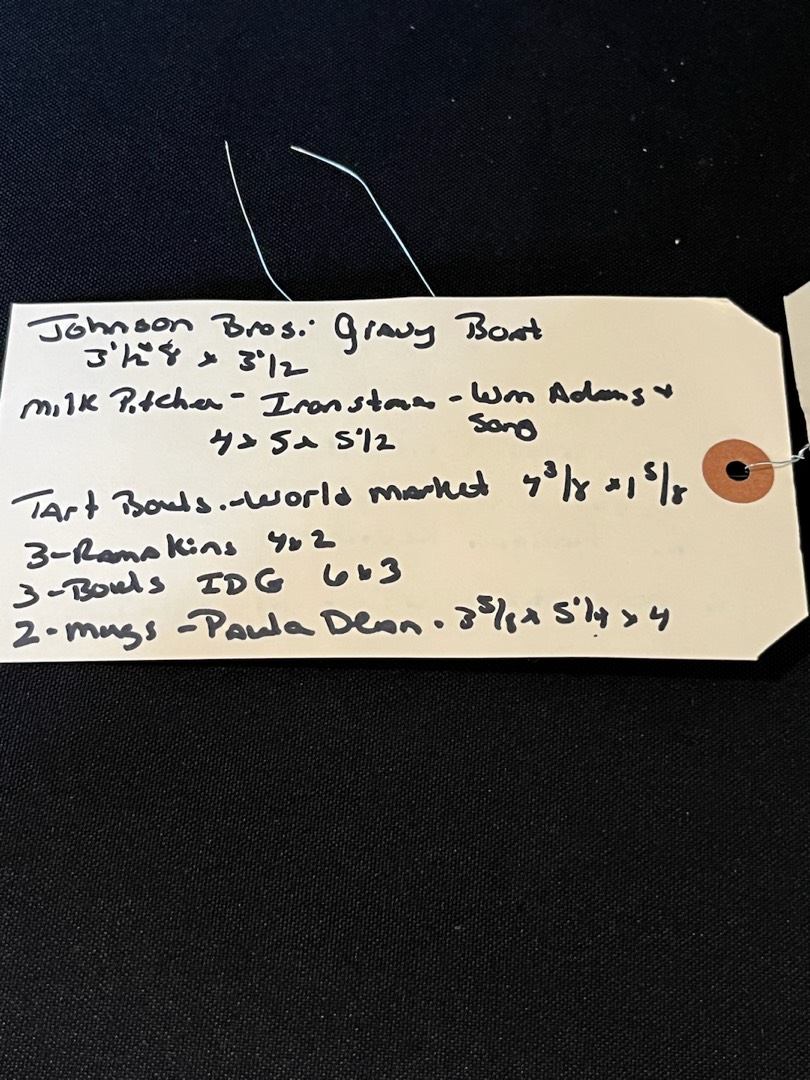 Johnson Bros. Gravy Boat
3 1/2 x 8 x 3 1/2
Milk Pitcher - Ironstone - Wm Adams &
Sons
4 x 5 x 5 1/2
Tart Bowls. - World Market 4 3/8 x 1 5/8
3 - Ramakins 4 x 2
3 - Bowls IDG 6 x 3
2 - mugs - Paula Dean - 3 5/8 x 5 1/4 x 4